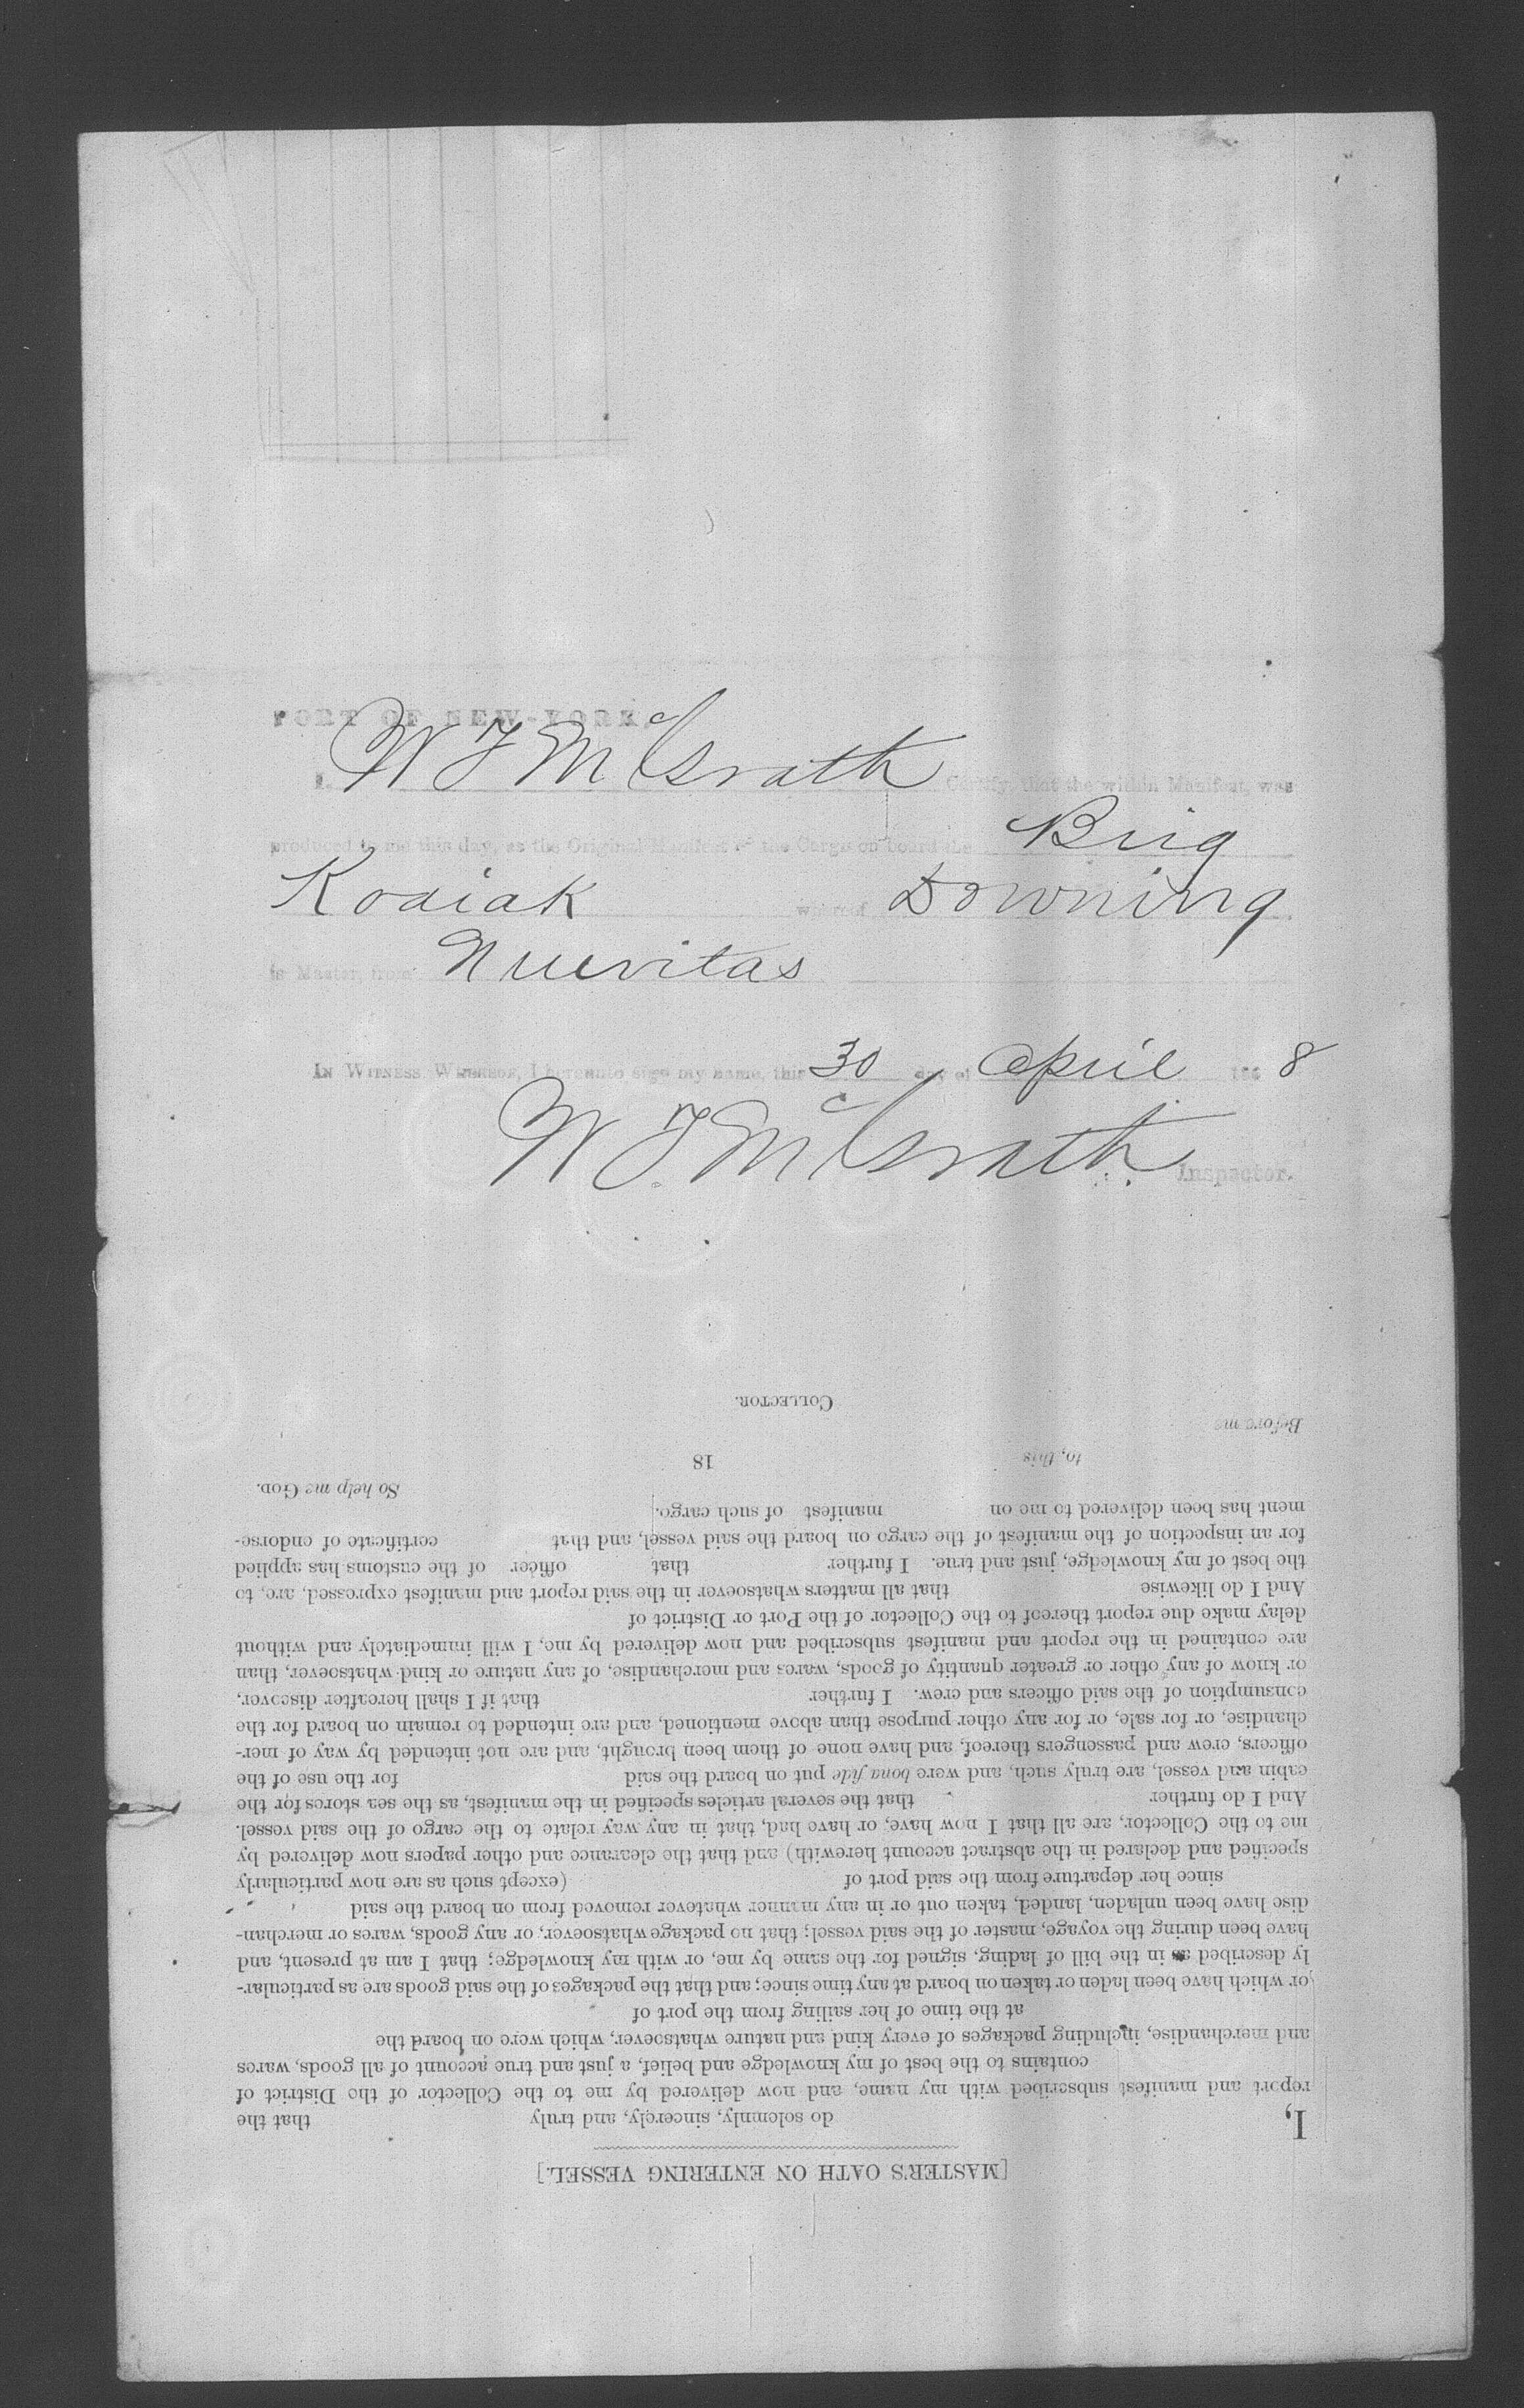 PORT OF NEW-YORK,
I, W F McGrath Certify, that the within Manifest, was
produced to me this day, as the Original Manifest of the Cargo on board the Brig
Kodiak whereof Downing
is Master, from Nuevitas
In Witness Whereof, I hereunto sign my name, this 30 day of April 186 8
W. F. McGrath
Inspector.
[MASTER'S OATH ON ENTERING VESSEL.]
I, do solemnly, sincerely, and truly that the
report and manifest subscribed with my name, and now delivered by me to the Collector of the District of
contains to the best of my knowledge and belief, a just and true account of all goods, wares
and merchandise, including packages of every kind and nature whatsoever, which were on board the
at the time of her sailing from the port of
or which have been laden or taken on board at any time since; and that the packages of the said goods are as particular-
ly described as in the bill of lading, signed for the same by me, or with my knowledge; that I am at present, and
have been during the voyage, master of the said vessel; that no package whatsoever, or any goods, wares or merchan-
dise have been unladen, landed, taken out or in any manner whatever removed from on board the said
since her departure from the said port of (except such as are now particularly
specified and declared in the abstract account herewith) and that the clearance and other papers now delivered by
me to the Collector, are all that I now have, or have had, that in any way relate to the cargo of the said vessel.
And I do further that the several articles specified in the manifest, as the sea stores for the
cabin and vessel, are truly such, and were bona fide put on board the said for the use of the
officers, crew and passengers thereof, and have none of them been brought, and are not intended by way of mer-
chandise, or for sale, or for any other purpose than above mentioned, and are intended to remain on board for the
consumption of the said officers and crew. I further that if I shall hereafter discover,
or know of any other or greater quantity of goods, wares and merchandise, of any nature or kind whatsoever, than
are contained in the report and manifest subscribed and now delivered by me, I will immediately and without
delay make due report thereof to the Collector of the Port or District of
And I do likewise that all matters whatsoever in the said report and manifest expressed, are, to
the best of my knowledge, just and true. I further that officer of the customs has applied
for an inspection of the manifest of the cargo on board the said vessel, and that certificate of endorse-
ment has been delivered to me on manifest of such cargo.
So help me God.
to, this 18
Before me
Collector.